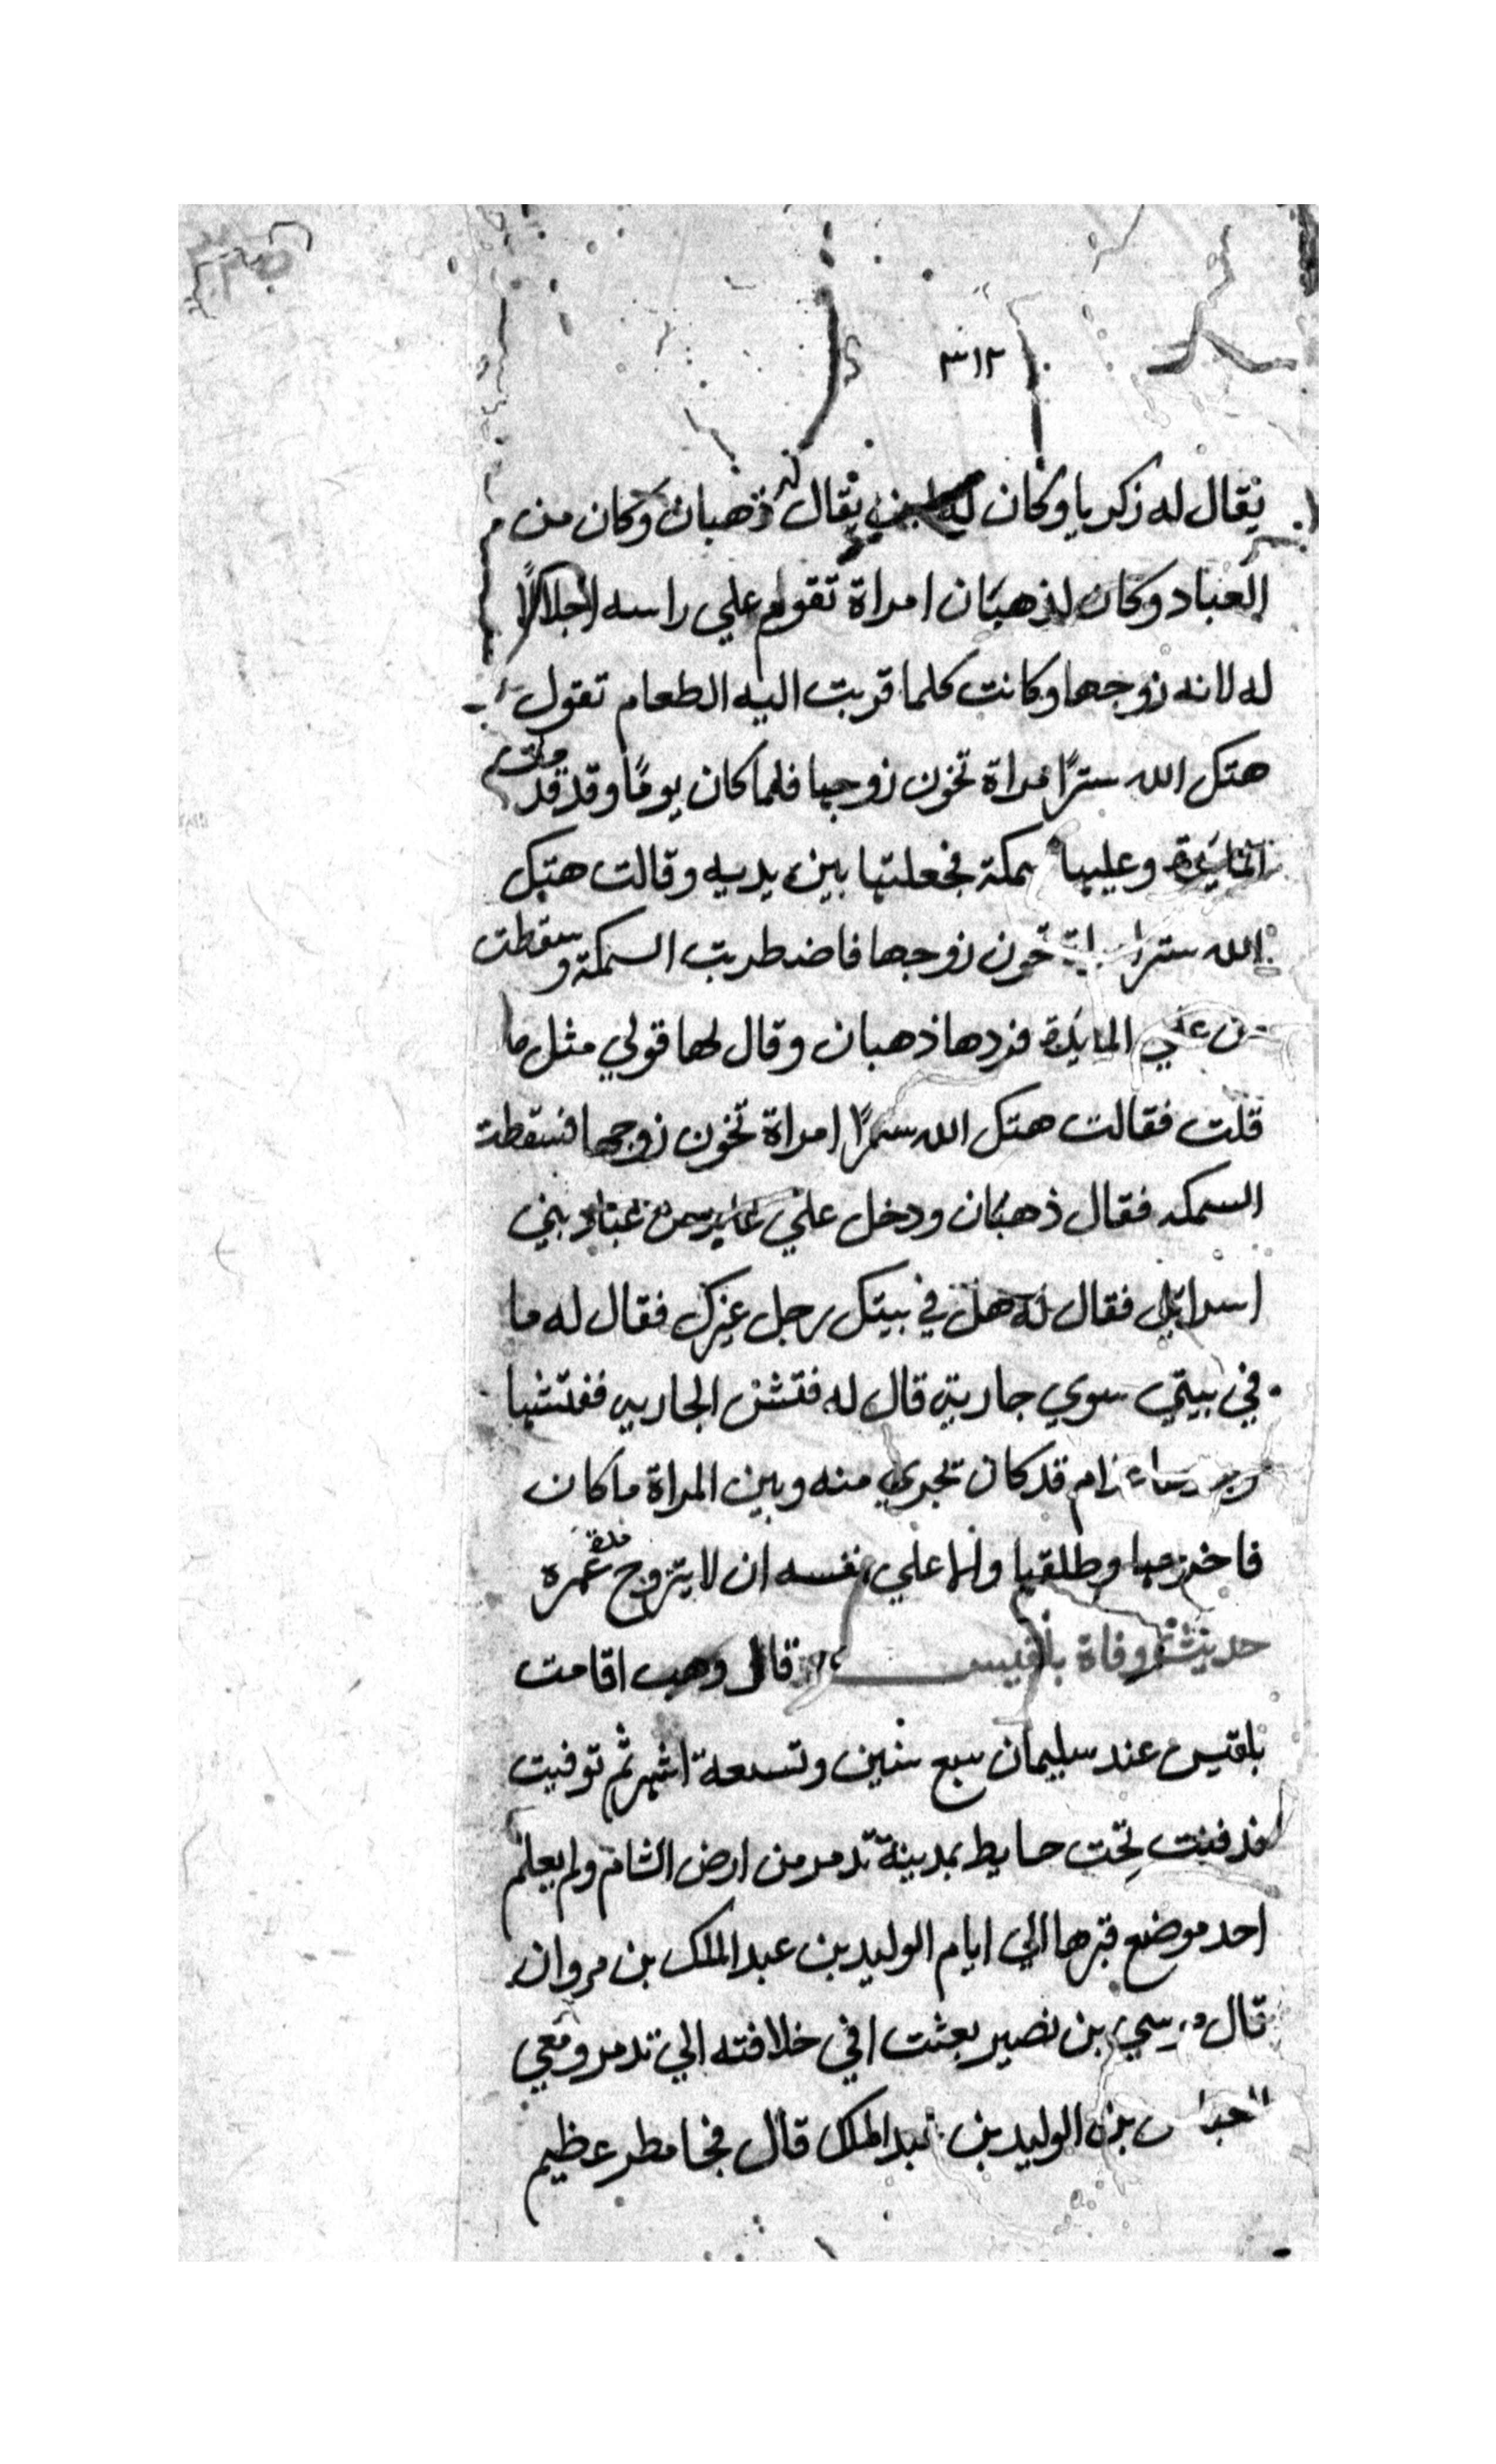 ٣١٢
يقال له زكريا وكان له ابن يقال له ذهبان وكان من
العباد وكان لذهبان امراة تقوم علي راسه اجلالاً
له لانه زوجها وكانت كلما قربت اليه الطعام تقول
هتك الله ستراً مراة تخون زوجها فلما كان يومًا وقد قدمت
المايدة وعليها سمكة فجعلتها بين يديه وقالت هتك
الله ستر تخون زوجها فاضطربت السمكة وسقطت
علي المايدة فردها ذهبان وقال لها قولي مثل ما
قلت فقالت هتك الله ستراً امراة تخون زوجها فسقطت
السمكه فقال ذهبان ودخل علي من عباد بني
اسراىيل فقال له هل في بيتك رجل غيرك فقال له ما
في بيتي سوي جاريتي قال له فتش الجاريه ففتشها
قد كان تجري منه وبين المراة ما كان
فاخرجها وطلقها علي نفسه ان لا يتزوج
حديث وفاة بلقيس قال وهب اقامت
بلقيس عند سليمان سبع سنين وتسعة اشهر ثم توفيت
فدفنت تحت حايط بمدينة تدمر من ارض الشام ولم يعلم
احد موضع قبرها الي ايام الوليد بن عبد الملك بن مروان
قال موسي بن نصير بعثت في خلافته الي تدمر ومعي
العباس بن الوليد بن عبد الملك قال فجا مطر عظيم